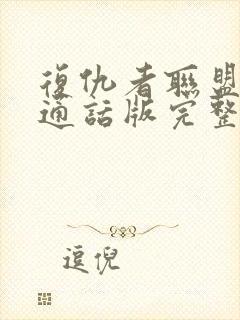 復仇者聯盟
通話版完整
逗倪